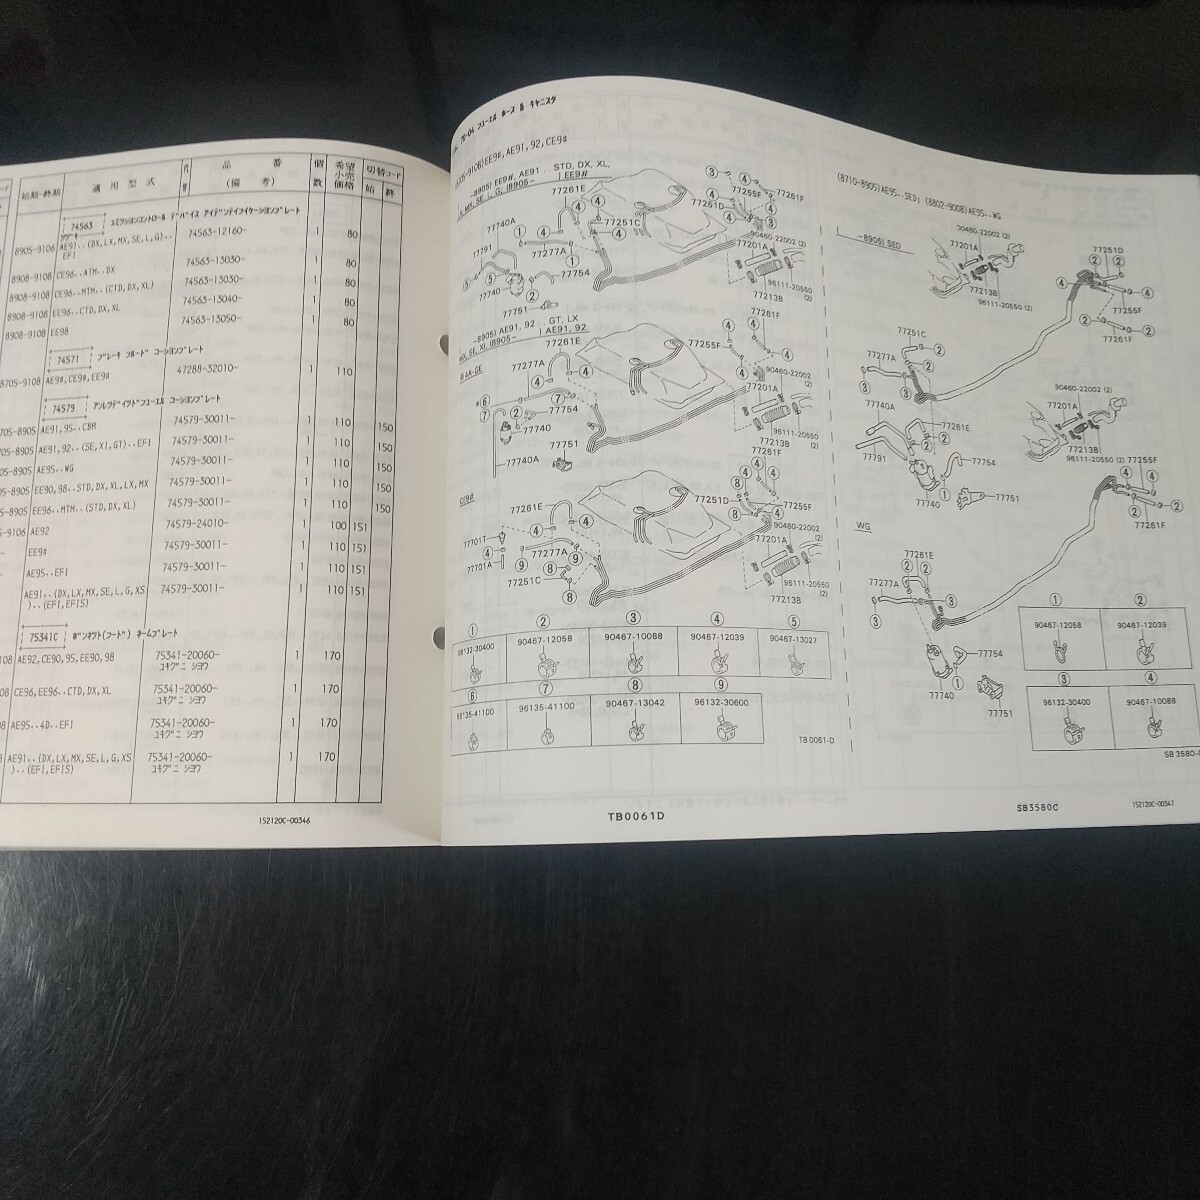 始期-終期 適用型式 品番 (備考) 個数 希望小売価格 切替コード 始 終
74563 エミツシヨンコントロール デバイス アイデンテイフイケーシヨンプレート
8905-9106 AE91..(DX,LX,MX,SE,L,G).. EFI 74563-12160- 1 80
8908-9108 CE96..ATM..DX 74563-13030- 1 80
8908-9108 CE96..MTM..(CTD,DX,XL) 74563-13030- 1 80
8908-9108 EE96..CTD,DX,XL 74563-13040- 1 80
8908-9108 EE98 74563-13050- 1 80
74571 ブレーキ フルード コーシヨンプレート
8705-9108 AE9#,CE9#,EE9# 47288-32010- 1 110
74579 アンレデイツドフユーエル コーシヨンプレート
705-8905 AE91,95..CBR 74579-30011- 1 110 150
05-8905 AE91,92..(SE,XI,GT)..EFI 74579-30011- 1 110 150
05-8905 AE95..WG 74579-30011- 1 110 150
5-8905 EE90,98..STD,DX,XL,LX,MX 74579-30011- 1 110 150
5-8905 EE96..MTM..(STD,DX,XL) 74579-30011- 1 110 150
5-9106 AE92 74579-24010- 1 100 151
EE9# 74579-30011- 1 110 151
AE95..EFI 74579-30011- 1 110 151
AE91..(DX,LX,MX,SE,L,G,XS )..(EFI,EFIS) 74579-30011- 1 110 151
75341C ボンネツト(フード) ネームプレート
108 AE92,CE90,95,EE90,98 75341-20060- ユキグニ シヨウ 1 170
08 CE96,EE96..CTD,DX,XL 75341-20060- ユキグニ シヨウ 1 170
8 AE95..4D..EFI 75341-20060- ユキグニ シヨウ 1 170
AE91..(DX,LX,MX,SE,L,G,XS )..(EFI,EFIS) 75341-20060- ユキグニ シヨウ 1 170
152120C-00346
70-04 フユーエル ホース & キヤニスタ
-9106)EE9#,AE91,92,CE9#
-8905) EE9#,AE91..STD,DX,XL,
MX,SE,L,G,(8905- ) EE9#
77261E
77740A
77251C
77791
77277A
77740
77754
77751
77251D
77255F
77261F
90460-22002 (2)
77201A
96111-20550 (2)
77213B
-8905) AE91,92 GT,LX
MX,SE,XI,(8905- ) AE91,92
4A-GE
77261E
77277A
77754
77740
77751
77740A
77255F
77261F
77201A
90460-22002 (2)
96111-20550 (2)
77213B
CE9#
77261E
77701T
77701A
77277A
77251C
77261F
77251D
77255F
90460-22002 (2)
77201A
96111-20550 (2)
77213B
① ② ③ ④ ⑤
96132-30400 90467-12058 90467-10088 90467-12039 90467-13027
⑥ ⑦ ⑧ ⑨
96135-41100 96135-41100 90467-13042 96132-30600
TB 0061-D
TB0061D
(8710-8905)AE95..SED; (8802-9008)AE95..WG
-8905) SED
90460-22002 (2)
77201A
77213B
96111-20550 (2)
77251D
77255F
77261F
77251C
77277A
77740A
77261E
77791
77754
77740
77751
90460-22002 (2)
77201A
77213B
96111-20550 (2)
77255F
77261F
WG
77261E
77277A
77754
77740
77751
① ②
90467-12058 90467-12039
③ ④
96132-30400 90467-10088
SB 3580-
SB3580C
152120C-00347